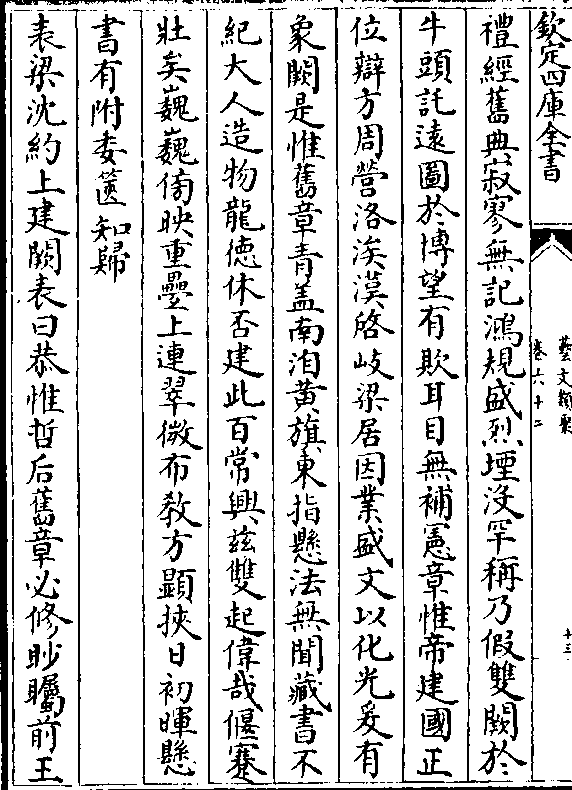 欽定四庫全書
藝文類聚
卷六十二
十三
禮經舊典寂寥無記鴻規盛烈堙沒罕稱乃假雙闕於
牛頭託遠圖於博望有欺耳目無補憲章惟帝建國正
位辯方周營洛涘漢啓岐梁居因業盛文以化光爰有
象闕是惟舊章青盖南洎黄旗東指懸法無聞藏書不
紀大人造物龍德休否建此百常興兹雙起偉哉偃蹇
壯矣巍巍傍映重疊上連翠微布教方顯挾日初暉懸
書有附委篋知歸
表梁沈約上建闕表曰恭惟哲后舊章必修眇矚前王